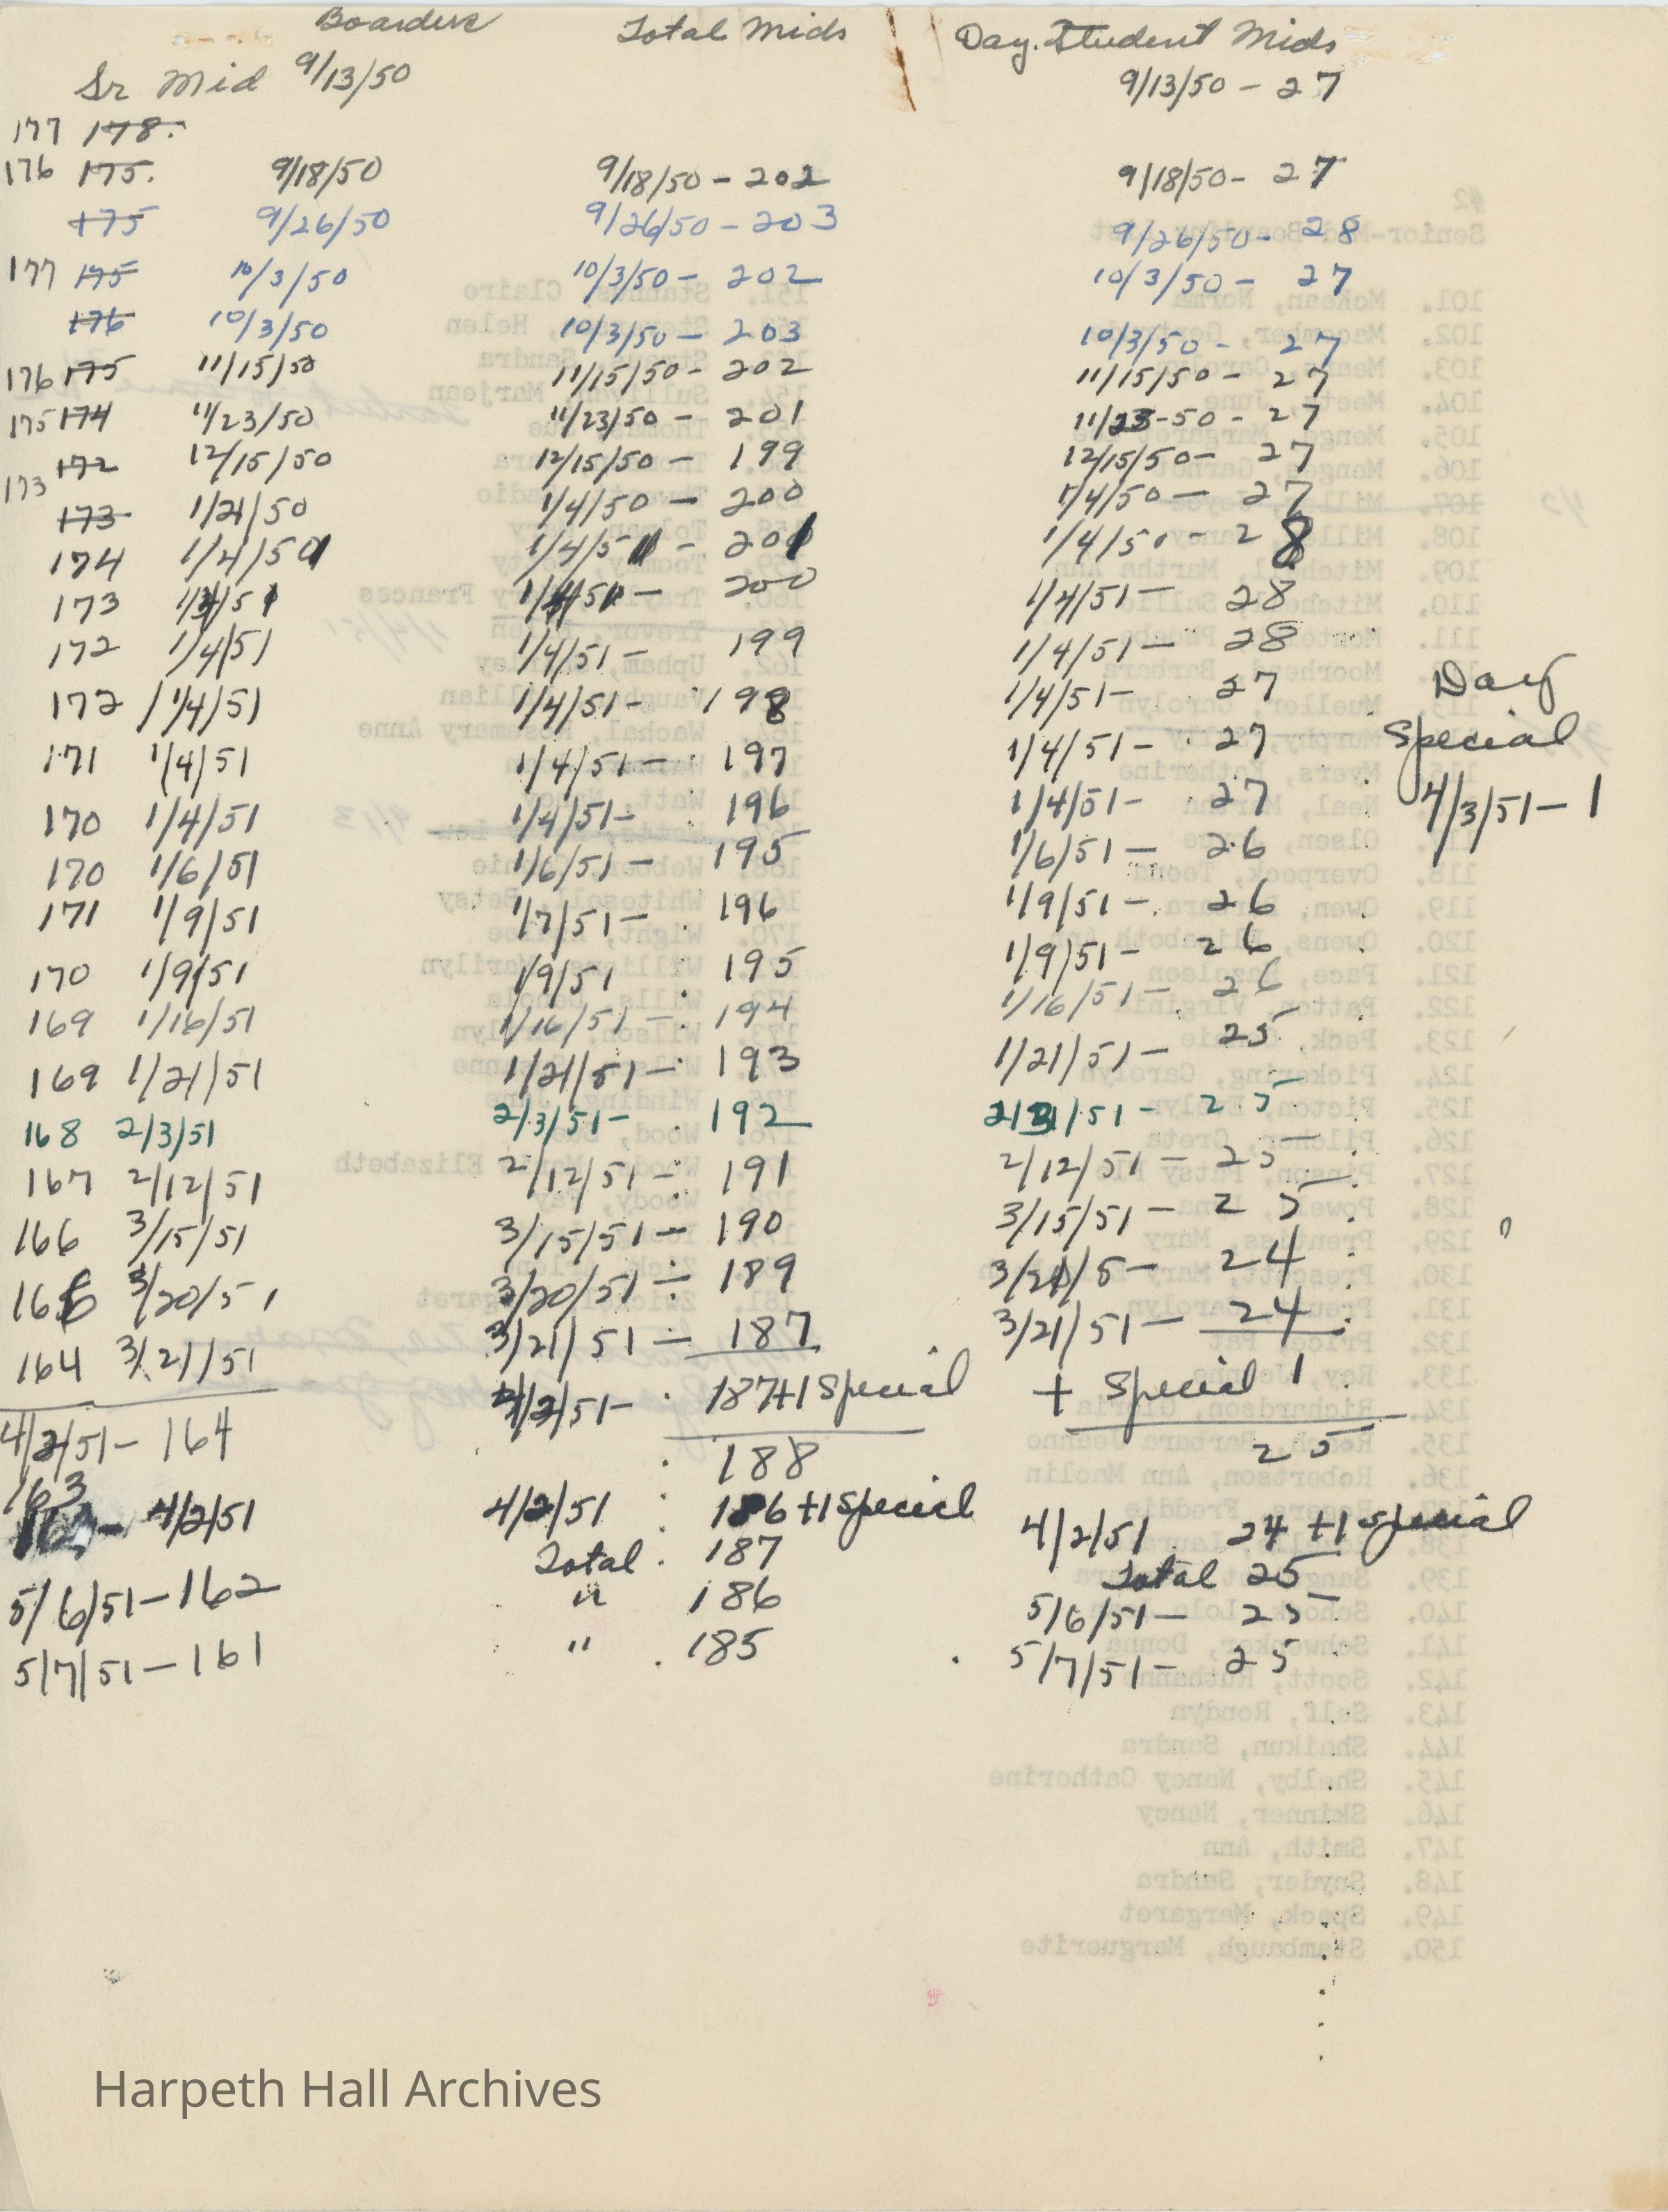 Boarders Total Mids Day Student Mids
Sr Mid 9/13/50 9/13/50 - 27
177 178.
176 175. 9/18/50 9/18/50 - 202 9/18/50 - 27
175 9/26/50 9/26/50 - 203 9/26/50 - 28
177 175 10/3/50 10/3/50 - 202 10/3/50 - 27
176 10/3/50 10/3/50 - 203 10/3/50 - 27
176 175 11/15/50 11/15/50 - 202 11/15/50 - 27
175 174 11/23/50 11/23/50 - 201 11/23-50 - 27
173 172 12/15/50 12/15/50 - 199 12/15/50 - 27
173 1/21/50 1/4/50 - 200 1/4/50 - 27
174 1/4/51 1/4/51 - 201 1/4/51 - 28
173 1/4/51 1/4/51 - 200 1/4/51 - 28
172 1/4/51 1/4/51 - 199 1/4/51 - 28
172 1/4/51 1/4/51 - 198 1/4/51 - 27 Day
171 1/4/51 1/4/51 - 197 1/4/51 - 27 Special
170 1/4/51 1/4/51 - 196 1/4/51 - 27 4/3/51 - 1
170 1/6/51 1/6/51 - 195 1/6/51 - 26
171 1/9/51 1/7/51 - 196 1/9/51 - 26
170 1/9/51 1/9/51 195 1/9/51 - 26
169 1/16/51 1/16/51 - 194 1/16/51 - 26
169 1/21/51 1/21/51 - 193 1/21/51 - 25
168 2/3/51 2/3/51 - 192 2/3/51 - 25
167 2/12/51 2/12/51 - 191 2/12/51 - 25
166 3/15/51 3/15/51 - 190 3/15/51 - 25
166 3/20/51 3/20/51 - 189 3/21/5 - 24
164 3/21/51 3/21/51 - 187 3/21/51 - 24
4/2/51 - 187+1 Special + Special 1
4/2/51 - 164 188 25
163 - 4/2/51 4/2/51 186 +1 Special 4/2/51 24 +1 Special
Total 187 Total 25
5/6/51 - 162 " 186 5/6/51 - 25
5/7/51 - 161 " 185 5/7/51 - 25
Harpeth Hall Archives